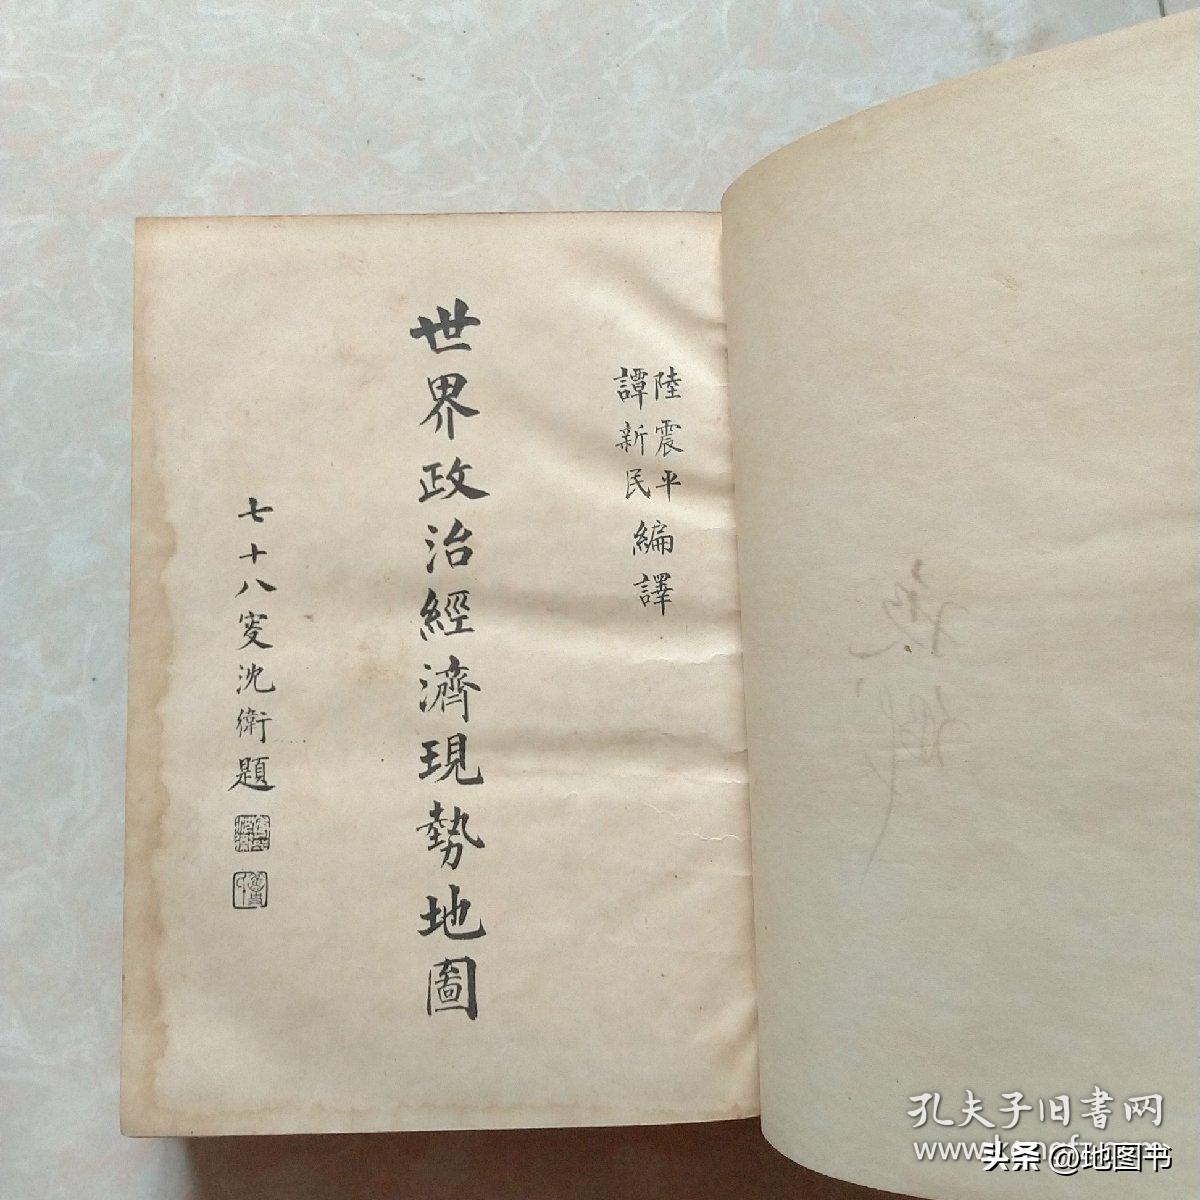 陸震平
譚新民
編譯
世界政治經濟現勢地圖
七十八叟沈衛題
孔夫子旧书网
头条 @地图书